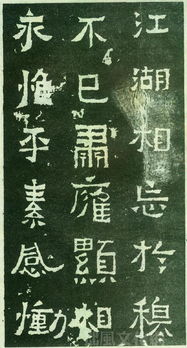 江湖相忘於穆
不已肅廱顯相
永惟平素感慟